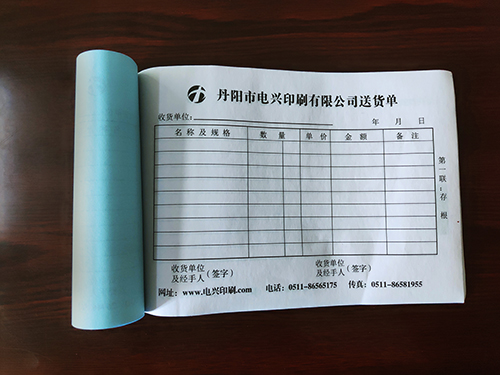 丹阳市电兴印刷有限公司送货单
收货单位: 年 月 日
名称及规格 数量 单价 金额 备注
第一联:存根
收货单位及经手人(签字) 收货单位及经手人(签字)
网址: www.电兴印刷.com 电话: 0511-86565175 传真: 0511-86581955